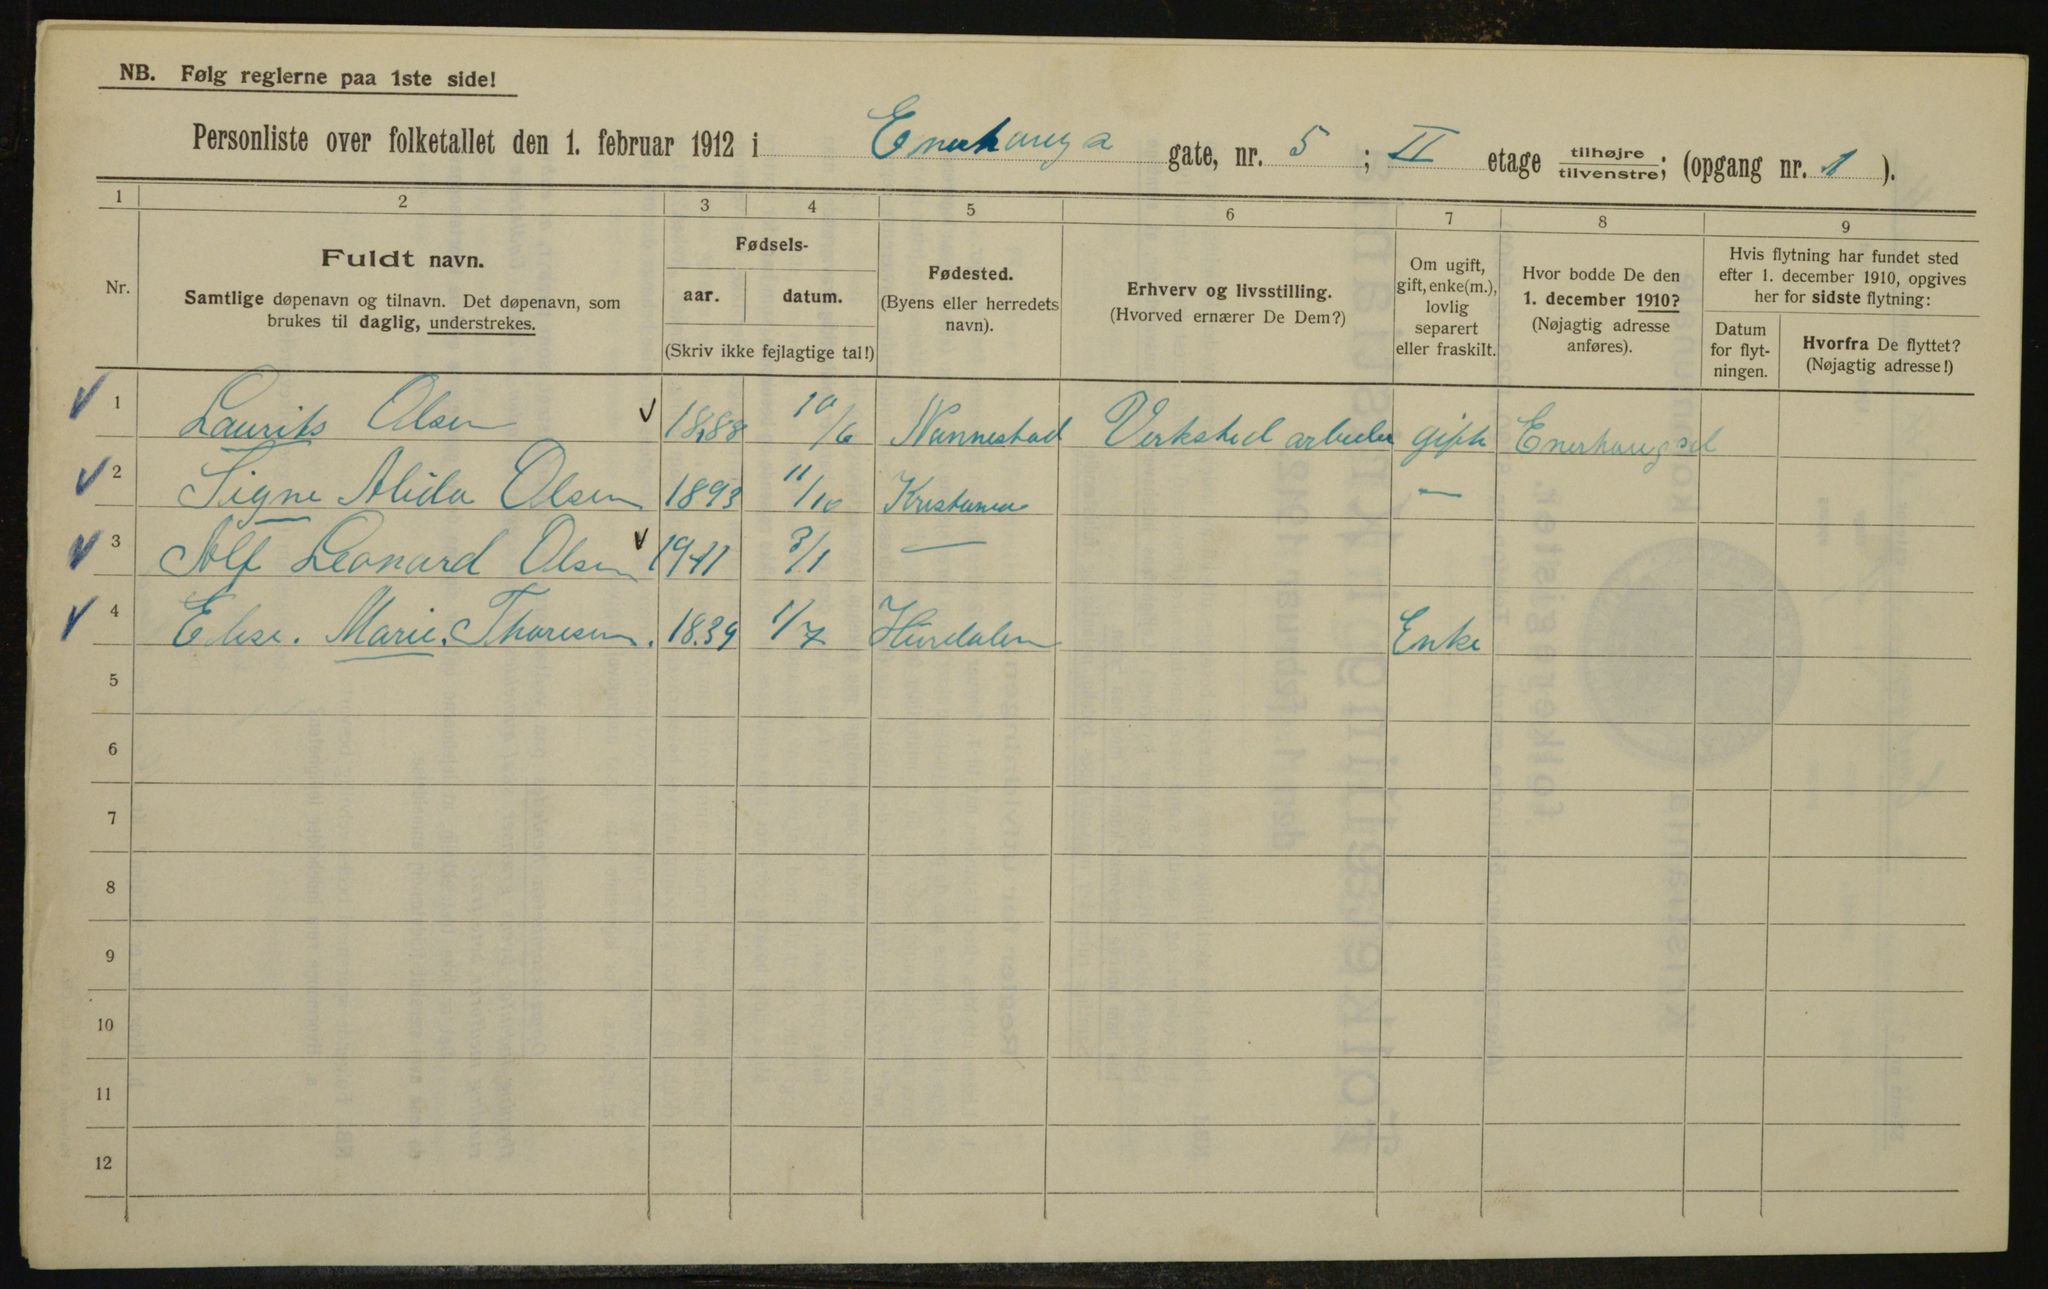 NB. Følg reglerne paa 1ste side!
Personliste over folketallet den 1. februar 1912 i Enerhauga gate, nr. 5 ; II etage tilhøjre/tilvenstre; (opgang nr. 1 ).
1 2 3 4 5 6 7 8 9
Nr.
Fuldt navn.
Samtlige døpenavn og tilnavn. Det døpenavn, som
brukes til daglig, understrekes.
Fødsels-
aar. datum.
(Skriv ikke fejlagtige tal!)
Fødested.
(Byens eller herredets
navn).
Erhverv og livsstilling.
(Hvorved ernærer De Dem?)
Om ugift,
gift, enke(m.),
lovlig
separert
eller fraskilt.
Hvor bodde De den
1. december 1910?
(Nøjagtig adresse
anføres).
Hvis flytning har fundet sted
efter 1. december 1910, opgives
her for sidste flytning:
Datum
for flyt-
ningen.
Hvorfra De flyttet?
(Nøjagtig adresse!)
1 Laurits Olsen 1888 10/6 Nannestad Verksted arbeider gift
2 Signe Alida Olsen 1893 11/10 Kristania —
3 Alf Leonard Olsen 1911 3/1 —
4 Elise. Marie. Thoresen. 1839 1/7 Hurdalen Enke
5
6
7
8
9
10
11
12